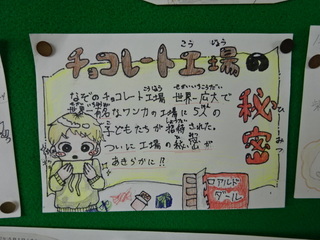 チョコレート工場の
秘密
なぞのチョコレート工場 世界一広大で
世界一有名なワンカの工場に5人の
子どもたちが招待された。
ついに工場の秘密が
あきらかに!!
ロアルド
ダール